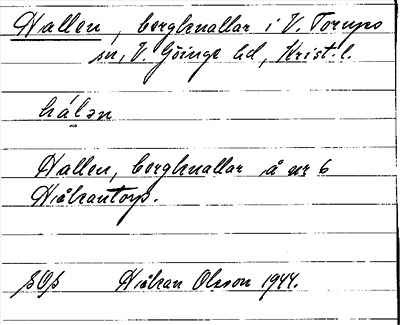 Hallen, bergknallar i V. Torups
sn, V. Göinge hd, Krist. l.
hálən
Hallen, bergknallar å nr 6
Håkantorp.
Håkan Olsson 1944.